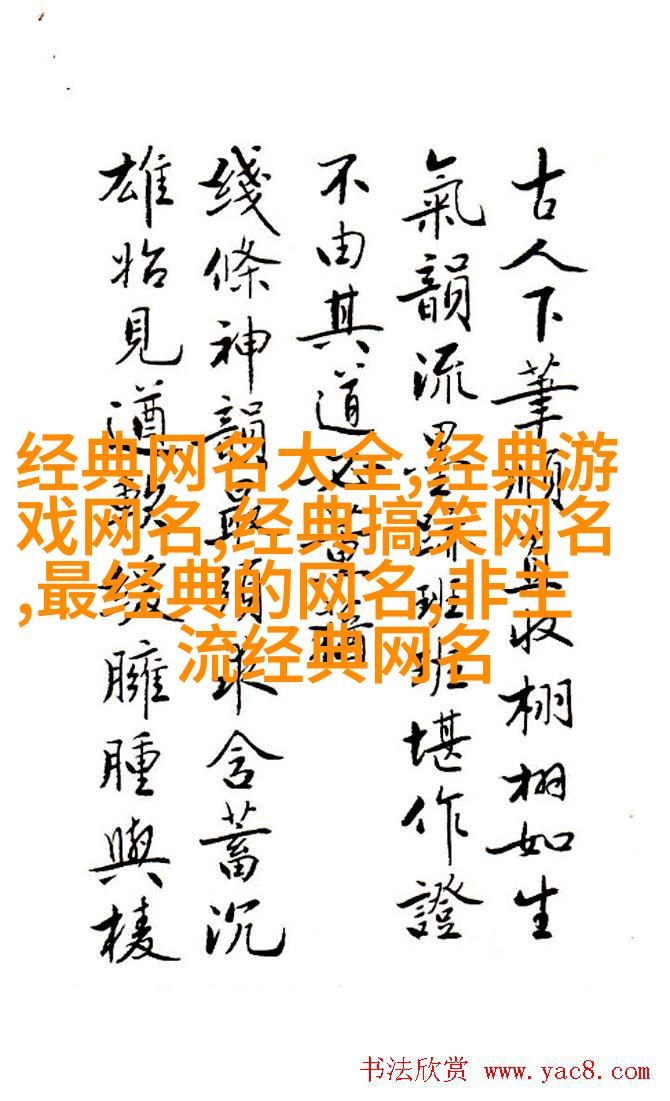 古人下筆收栩栩如生
氣韻流墨跡班班堪作證
不由其道必當
綫條神韻最須求含蓄沉
雄始見遒緩臃腫與棱
经典网名大全,经典游
戏网名,经典搞笑网名
,最经典的网名,非主
流经典网名
书法欣赏 www.yac8.com